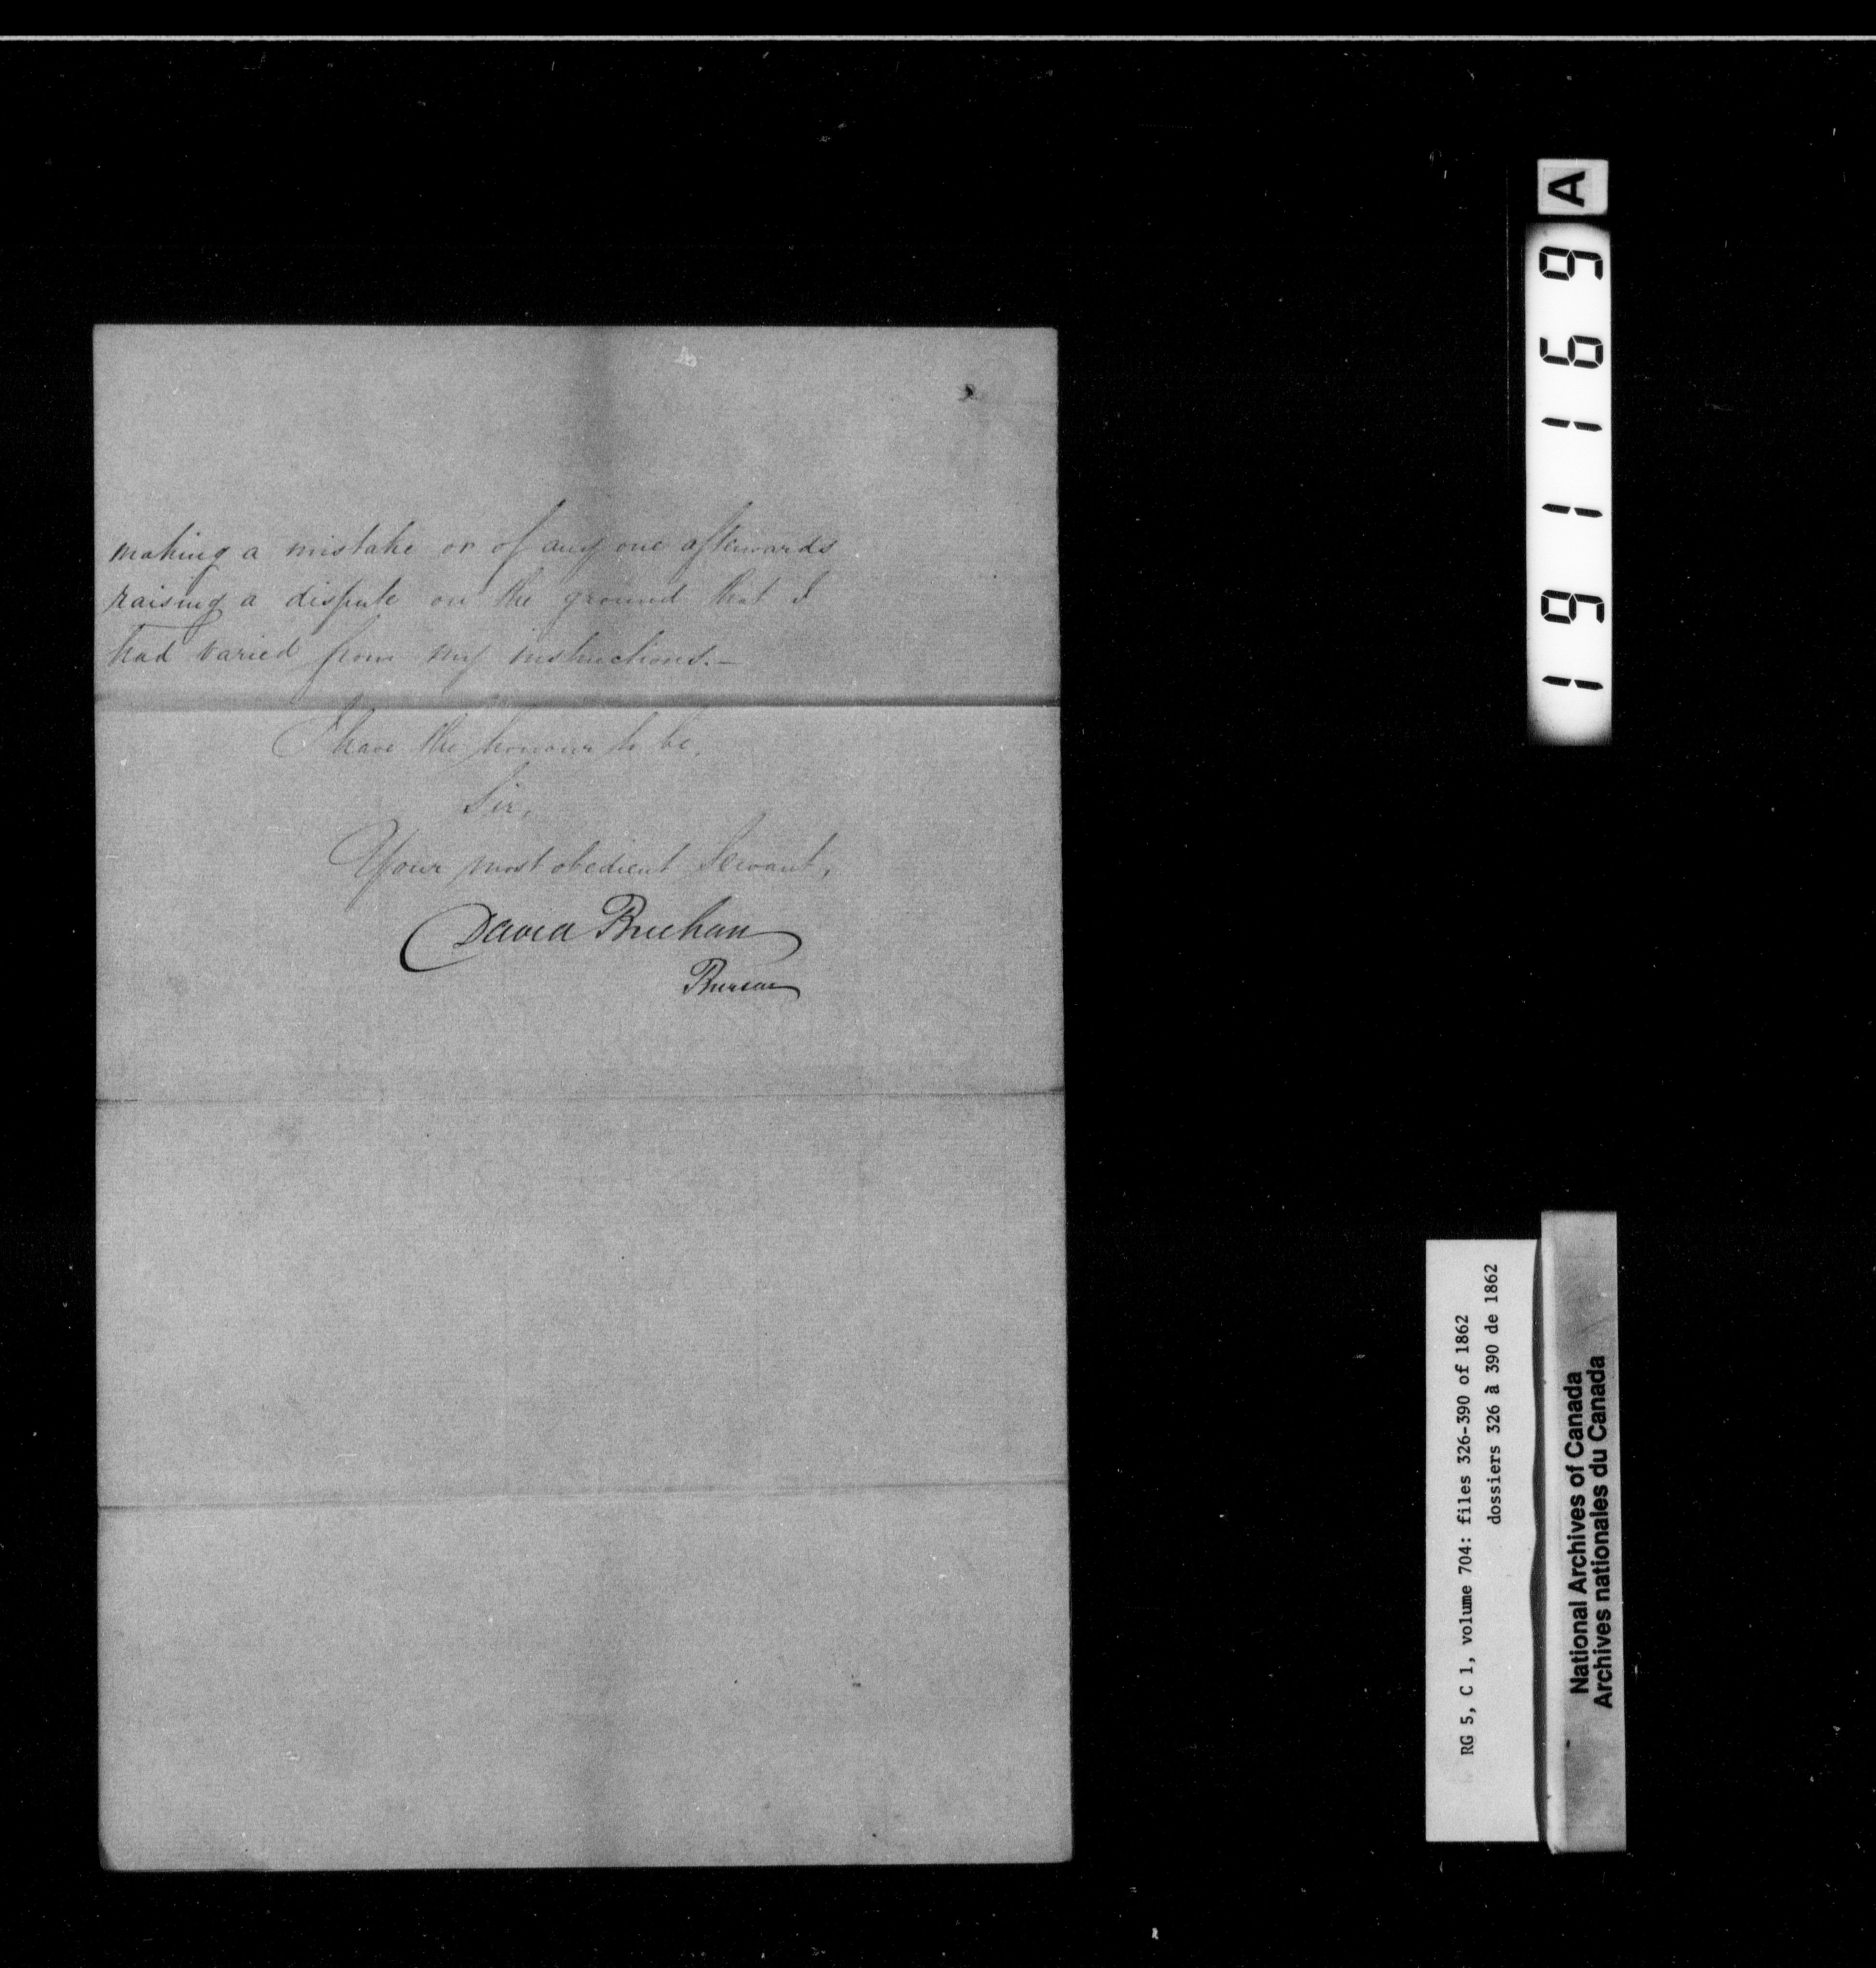 making a mistake or of any one afterwards
raising a dispute on the ground that I
had varied from my instructions.—
I have the honour to be,
Sir,
Your most obedient Servant,
David Buchan
Bursar
191169
A
RG 5, C 1, volume 704: files 326-390 of 1862
dossiers 326 à 390 de 1862
National Archives of Canada
Archives nationales du Canada